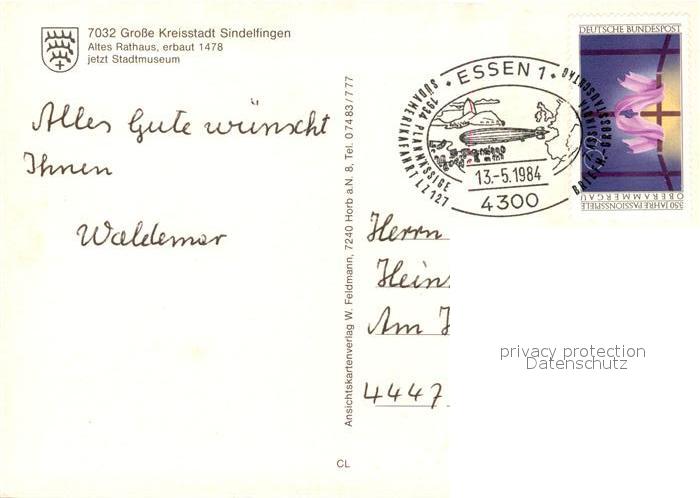 7032 Große Kreisstadt Sindelfingen
Altes Rathaus, erbaut 1478
jetzt Stadtmuseum
Alles Gute wünscht
Ihnen
Waldemar
Ansichtskartenverlag W. Feldmann, 7240 Horb a.N. 8, Tel. 07483/777
CL
ESSEN 1
1934 PLANMÄSSIGE
SÜDAMERIKAFAHRT LZ 127
BRIEFM.-GROSSTAUSCHTAG
13.-5.1984
4300
DEUTSCHE BUNDESPOST
350 JAHRE PASSIONSSPIELE
OBERAMMERGAU
Herrn
Hein
Am
4447
privacy protection
Datenschutz